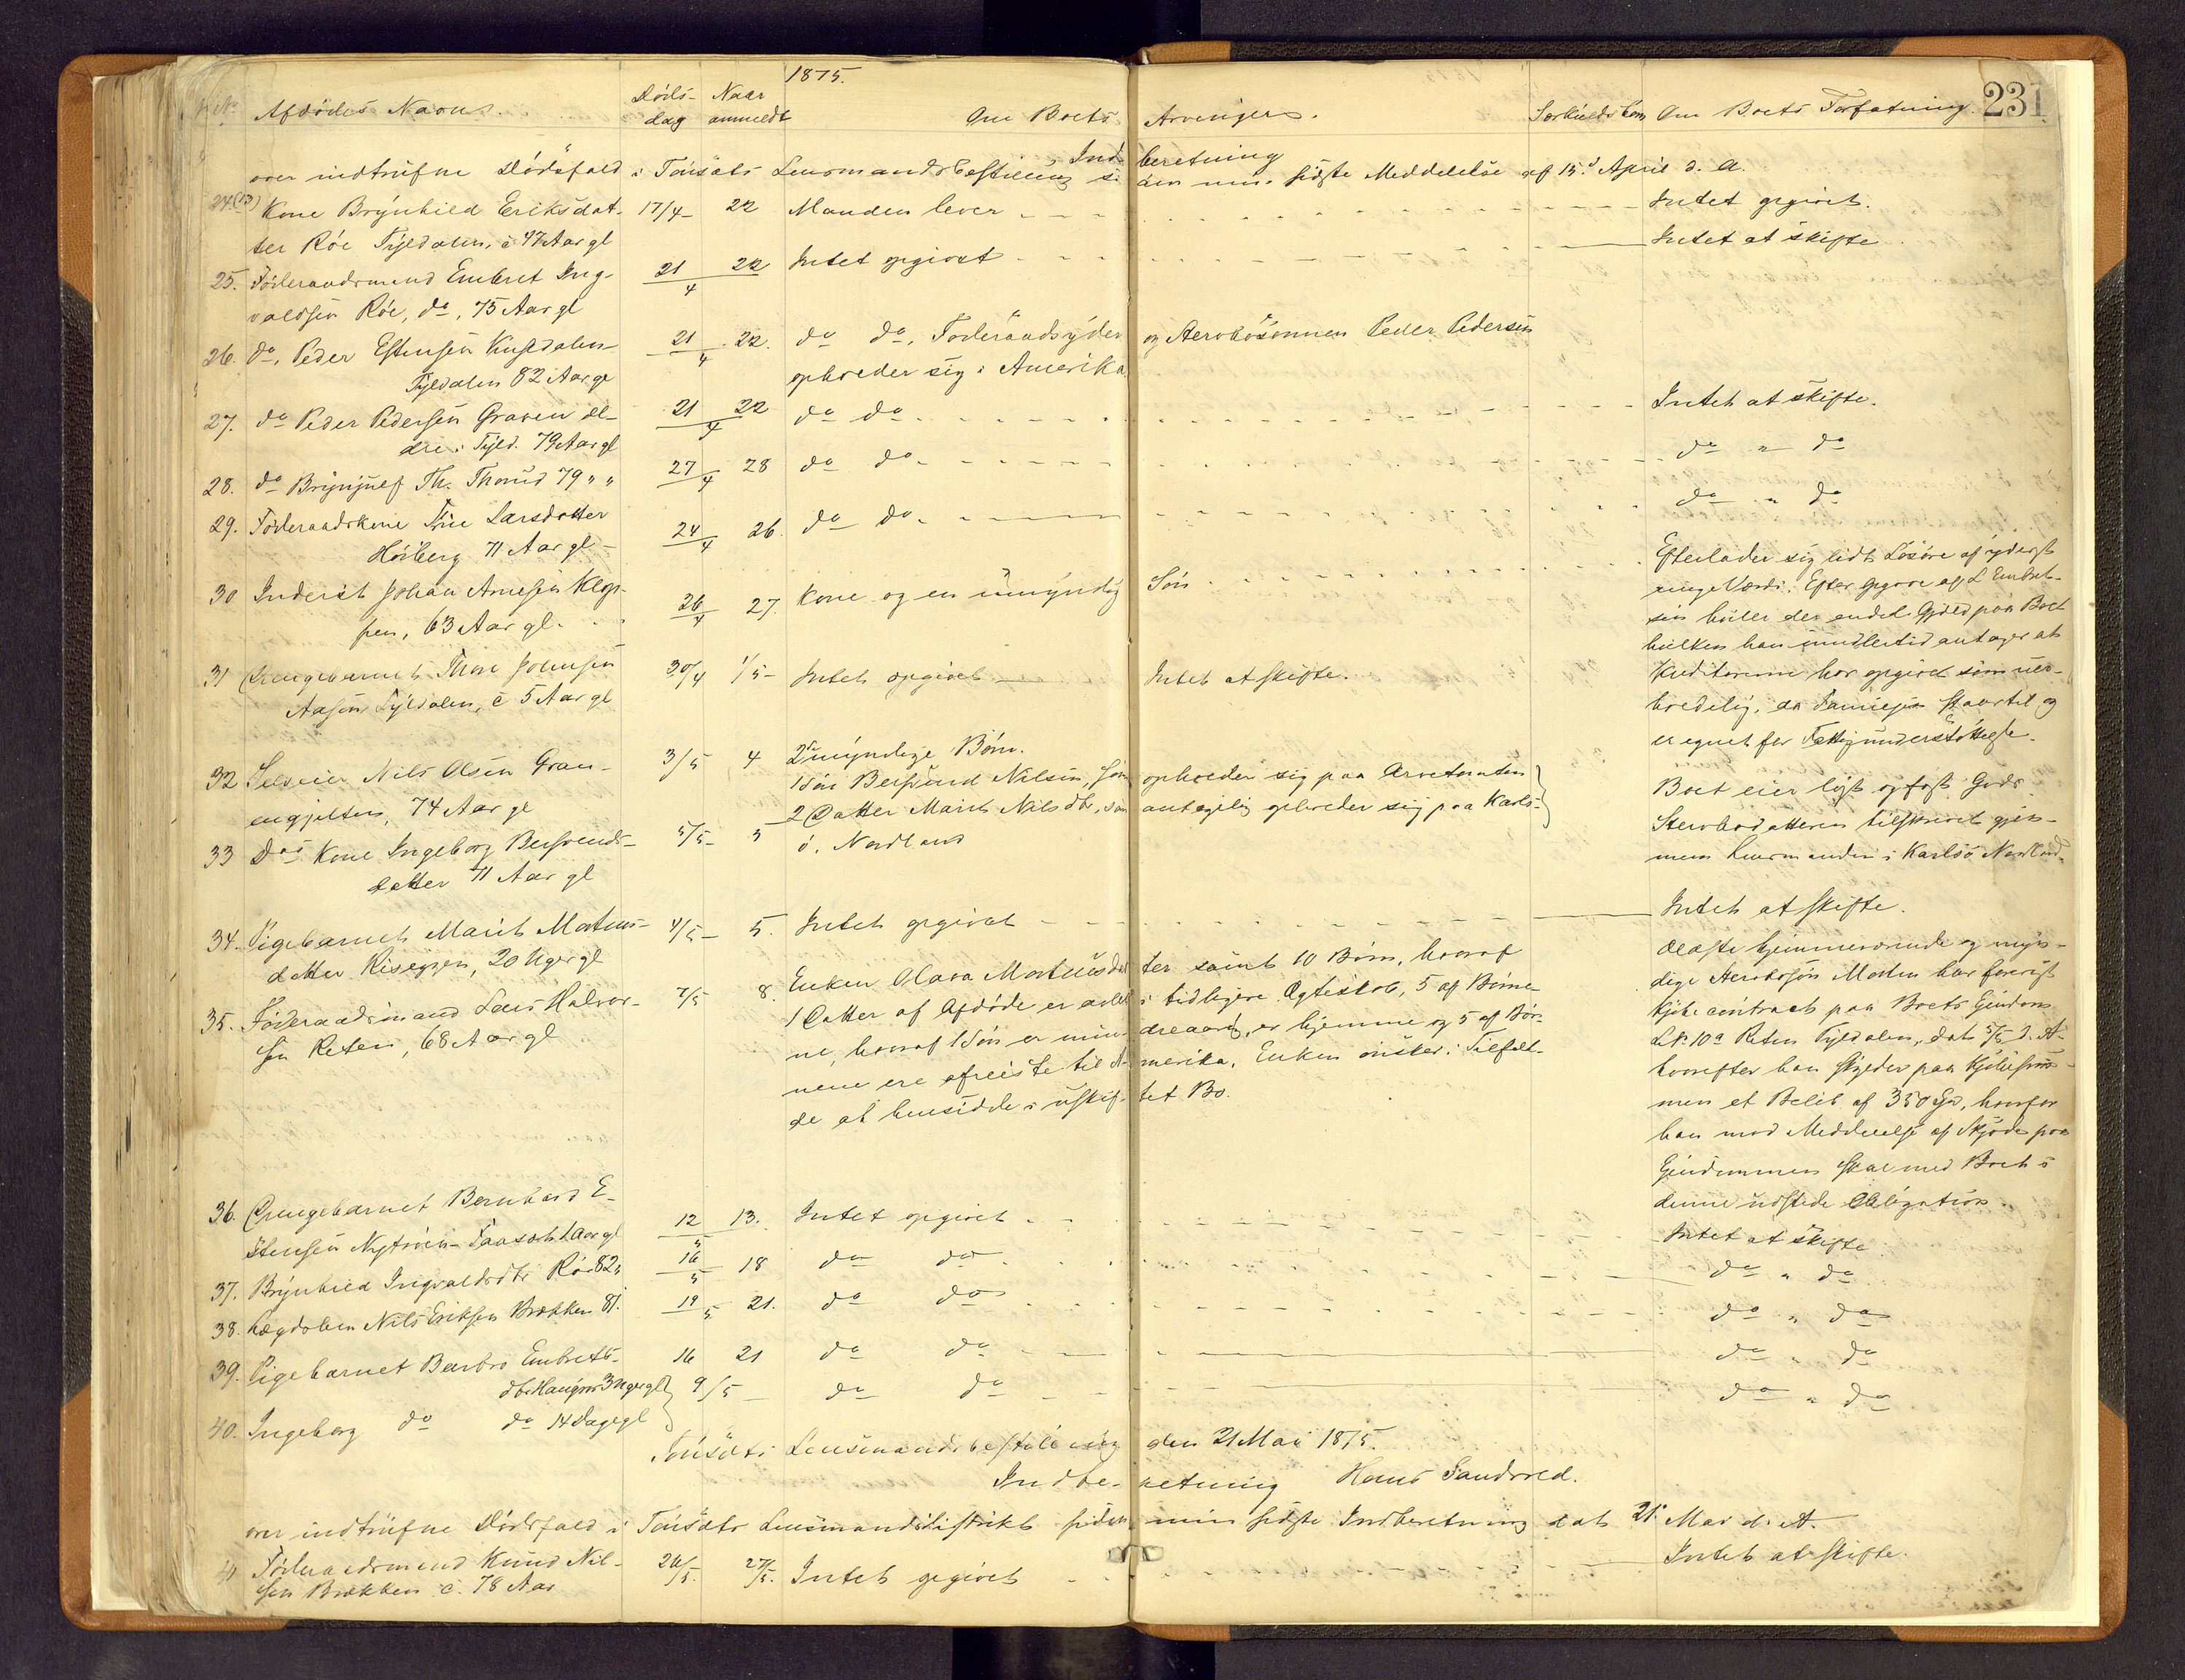 1875.
231
Afdødes Navne.
Døds-dag
Naar anmeldt
Om Boets Arvinger.
Særkuldsbørn
Om Boets Forfatning
Indberetning
over indtrufne Dødsfald i Tønsæts Lensmandsbestilling siden min sidste Meddelelse af 15d April d. A.
24 (13) Kone Brynhild Eriksdat- 17/4 - 22 Manden lever - Intet opgivet.
ter Røe Tyldalen, c 47 Aar gl Intet at skifte
25. Føderaadsmand Embret Ing- 21/4 22 Intet opgivet
valdsen Røe, do, 75 Aar gl
26. do. Peder Estensen Kusdalen- 21/4 22. do do. Føderaadsyder og Stervbosønnen Peder Pedersen
Tyldalen 82 Aar gl opholder sig i Amerika
27. do Peder Pedersen Graven æl- 21/4 22 do do Intet at skifte.
dre i Tyld. 79 Aar gl do " do
28. do Brynjulf Th. Thorud 79 " " 27/4 28 do do.
29. Føderaadskone Larsdatter 24/4 26. do do. do " do
Høiberg 71 Aar gl
30 Inderst Johan Arnesen Klop- 26/4 27. Kone og en umyndig Søn
pen, 63 Aar gl.
Efterlader sig lidt Løsøre af yderst
ringe Værdi. Efter Opgave af L Embret-
sen hviler der endel Gjæld paa Boet
hvilken han imidlertid antager at
Kreditorerne har opgivet som uer-
holdelig, da Familien og
er egnet for Fattigunderstøttelse.
31 Drengebarnet Thore Johnsen 30/4 1/5 - Intet opgivet - Intet at skifte.
Aasen Tyldalen, c 5 Aar gl
32 Selveier Nils Olsen Gran- 3/5 4 2 myndige Børn.
engjelten, 74 Aar gl 1 Søn Bersvend Nilsen, som opholder sig paa Arvetomten
33 Ds Kone Ingeborg Bersvends- 5/5 - 5 2 Datter Marit Nilsdtr, som antagelig opholder sig paa Karls-
datter 71 Aar gl ø. Nordland
Boet eier løst og fast Gods
Stervbodatteren tilskrevet gjen-
nem Lensmanden i Karlsø Nordland.
34. Pigebarnet Marit Mortens- 4/5 - 5. Intet opgivet - Intet at skifte.
datter Riseggen, 20 Uger gl
35. Føderaadsmand Lars Halvor- 7/5 8. Enken Olava Mortensdatter samt 10 Børn, hvoraf
sen Reten, 68 Aar gl 1 Datter af Afdøde er avlet i tidligere Ægteskab, 5 af Børne-
ne, hvoraf 1 Søn er min- dreaarig, er hjemme og 5 af Bør-
nene ere afreiste til A- merika. Enken ønsker i Tilfæl-
de at hensidde i uskif- tet Bo.
Ældste hjemmeværende og myn-
dige Stervbosøn Morten har forevist
Kjøbecontract paa Boets Eiendom
L.No 10a Reten Tyldalen, dat. 5/5 d. A.
hvorefter han skylder paa Kjøbesum-
men et Beløb af 350 Spd, hvorfor
han mod Meddelelse af Skjøde paa
Eiendommen skal med Boet i
denne udstede Obligation.
36. Drengebarnet Bernhard E- 12/5 13. Intet opgivet - Intet at skifte
stensen Nytrøen Faasæt 1 Aar gl
37. Brynhild Ingvaldsdtr Røe 82 " 16/5 18 do do do " do
38. Lægdslem Nils Eriksen Brækken 81. 19/5 21. do do do " do
39. Pigebarnet Barbro Embrets- 16 21 do do do " do
dtr Haugen 3 Uger gl } 9/5 - do do do " do
40. Ingeborg do do 14 Dage gl
Tønsæts Lensmandsbestilling den 21 Mai 1875.
Hans Sandvold.
Indberetning
over indtrufne Dødsfald i Tønsæts Lensmandsdistrikt siden min sidste Indberetning dat. 21. Mai d. A.
41 Føderaadsmand Knud Nil- 26/5. 27/5. Intet opgivet - Intet at skifte.
sen Brækken c. 78 Aar